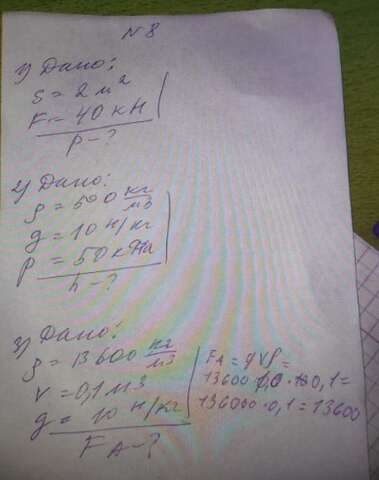 N 8
1) Дано:
S = 2 м²
F = 40 кН
p - ?
2) Дано:
ρ = 500 кг/м3
g = 10 Н/кг
p = 50 кПа
h - ?
3) Дано:
ρ = 13600 кг/м3
V = 0,1 м3
g = 10 Н/кг
FA - ?
FA = gVρ =
13600 · 10 · 0,1 =
136000 · 0,1 = 13600